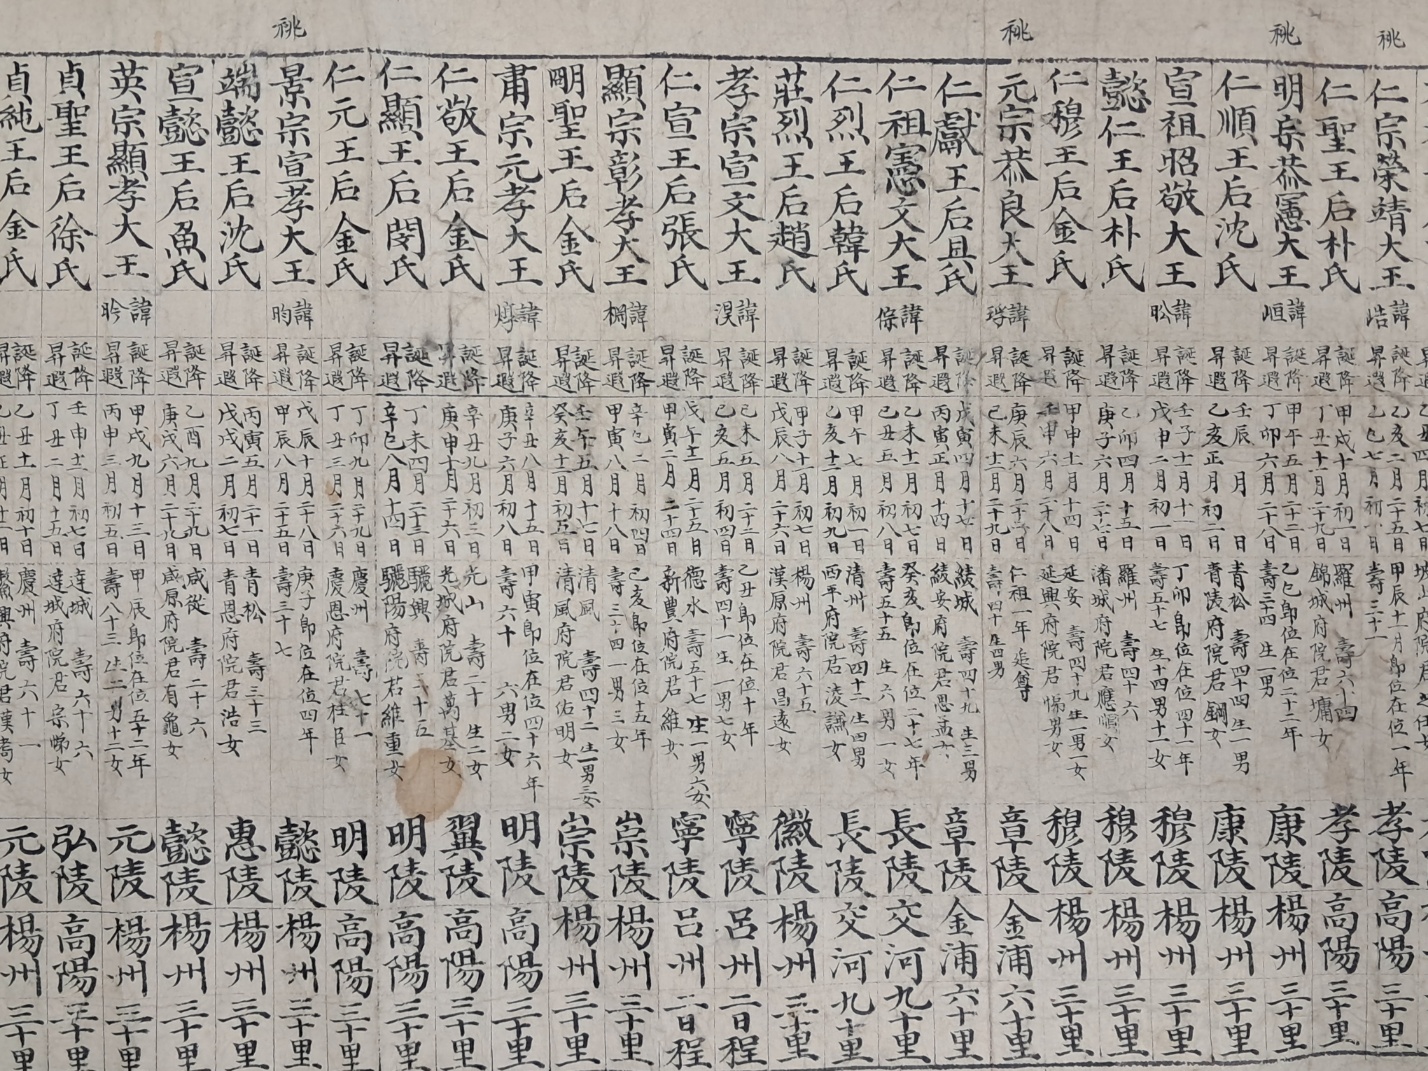 祧
仁宗榮靖大王 諱峼 誕降 乙亥二月二十五日 昇遐 乙巳七月初一日 甲辰十一月即位在位一年 壽三十一 孝陵 高陽 三十里
仁聖王后朴氏 誕降 甲戌十月初一日 昇遐 丁丑十一月二十九日 羅州 壽六十四 錦城府院君墉女 孝陵 高陽 三十里
祧
明宗恭憲大王 諱峘 誕降 甲午五月二十二日 昇遐 丁卯六月二十八日 乙巳即位在位二十二年 壽三十四 生一男 康陵 楊州 三十里
仁順王后沈氏 誕降 壬辰 月 日 昇遐 乙亥正月初二日 青松 壽四十四 生一男 青陵府院君鋼女 康陵 楊州 三十里
宣祖昭敬大王 諱昖 誕降 壬子十一月十一日 昇遐 戊申二月初一日 丁卯即位在位四十一年 壽五十七 生十四男十一女 穆陵 楊州 三十里
懿仁王后朴氏 誕降 乙卯四月十五日 昇遐 庚子六月二十六日 羅州 壽四十六 潘城府院君應順女 穆陵 楊州 三十里
仁穆王后金氏 誕降 甲申十一月十四日 昇遐 壬申六月二十八日 延安 壽四十九 生一男一女 延興府院君悌男女 穆陵 楊州 三十里
祧
元宗恭良大王 諱琈 誕降 庚辰六月二十二日 昇遐 己未十二月二十九日 仁祖一年追尊 壽四十 生四男 章陵 金浦 六十里
仁獻王后具氏 誕降 戊寅四月十七日 昇遐 丙寅正月十四日 綾城 壽四十九 生三男 綾安府院君思孟女 章陵 金浦 六十里
仁祖憲文大王 諱倧 誕降 乙未十一月初七日 昇遐 己丑五月初八日 癸亥即位在位二十七年 壽五十五 生六男一女 長陵 交河 九十里
仁烈王后韓氏 誕降 甲午七月初一日 昇遐 乙亥十二月初九日 清州 壽四十二 生四男 西平府院君浚謙女 長陵 交河 九十里
莊烈王后趙氏 誕降 甲子十一月初七日 昇遐 戊辰八月二十六日 楊州 壽六十五 漢原府院君昌遠女 徽陵 楊州 三十里
孝宗宣文大王 諱淏 誕降 己未五月二十二日 昇遐 己亥五月初四日 己丑即位在位十年 壽四十一 生一男七女 寧陵 呂州 二日程
仁宣王后張氏 誕降 戊午十二月二十五日 昇遐 甲寅二月二十四日 德水 壽五十七 生一男六女 新豊府院君維女 寧陵 呂州 二日程
顯宗彰孝大王 諱棩 誕降 辛巳二月初四日 昇遐 甲寅八月十八日 己亥即位在位十五年 壽三十四 一男三女 崇陵 楊州 三十里
明聖王后金氏 誕降 壬午五月十七日 昇遐 癸亥十二月初五日 清風 壽四十二 生一男三女 清風府院君佑明女 崇陵 楊州 三十里
肅宗元孝大王 諱焞 誕降 辛丑八月十五日 昇遐 庚子六月初八日 甲寅即位在位四十六年 壽六十 六男二女 明陵 高陽 三十里
仁敬王后金氏 誕降 辛丑九月初三日 昇遐 庚申十月二十六日 光山 壽二十 生二女 光城府院君萬基女 翼陵 高陽 三十里
仁顯王后閔氏 誕降 丁未四月二十三日 昇遐 辛巳八月十四日 驪興 壽三十五 驪陽府院君維重女 明陵 高陽 三十里
仁元王后金氏 誕降 丁卯九月二十九日 昇遐 丁丑三月二十六日 慶州 壽七十一 慶恩府院君柱臣女 明陵 高陽 三十里
祧
景宗宣孝大王 諱昀 誕降 戊辰十月二十八日 昇遐 甲辰八月二十五日 庚子即位在位四年 壽三十七 懿陵 楊州 三十里
端懿王后沈氏 誕降 丙寅五月二十一日 昇遐 戊戌二月初七日 青松 壽三十三 青恩府院君浩女 惠陵 楊州 三十里
宣懿王后魚氏 誕降 乙酉九月二十九日 昇遐 庚戌六月二十九日 咸從 壽二十六 咸原府院君有龜女 懿陵 楊州 三十里
英宗顯孝大王 諱昑 誕降 甲戌九月十三日 昇遐 丙申三月初五日 甲辰即位在位五十二年 壽八十三 生二男十二女 元陵 楊州 三十里
貞聖王后徐氏 誕降 壬申十二月初七日 昇遐 丁丑二月十五日 達城 壽六十六 達城府院君宗悌女 弘陵 高陽 三十里
貞純王后金氏 誕降 乙丑十一月初十日 昇遐 慶州 壽六十一 府院君漢耉女 元陵 楊州 三十里